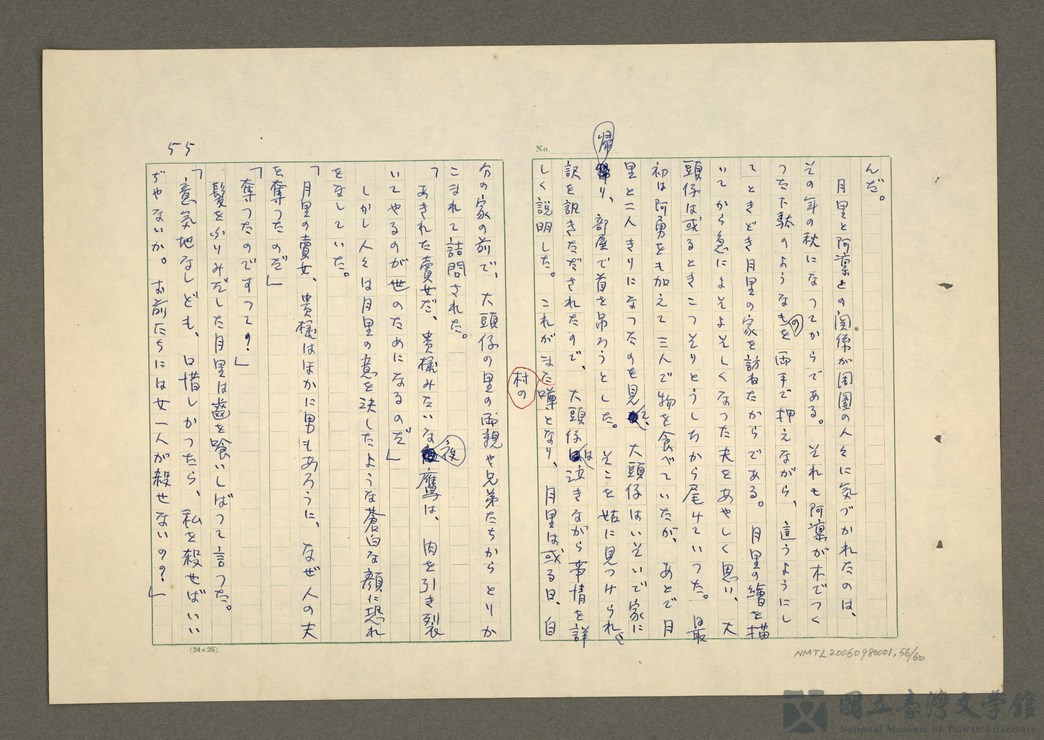 んだ。
月里と阿稟との関係が周囲の人々に気づかれたのは、
その年の秋になつてからである。それも阿稟が木でつく
つた下駄のようなものを両手で押えながら、這うようにし
てときどき月里の家を訪ねたからである。月里の繪を描
いてから急によそよそしくなつた夫をあやしく思い、大
頭仔は或るときこつそりとうしろから尾けていつた。最
初は阿勇をも加えて三人で物を食べていたが、あとで月
里と二人きりになつたのを見て、大頭仔はいそいで家に
帰り、部屋で首を吊ろうとした。そこを姑に見つけられ、
訳を訊きただされたので、大頭仔は泣きながら事情を詳
しく説明した。これがまた村の噂となり、月里は或る日、自
No.
分の家の前で、大頭仔の里の両親や兄弟たちからとりか
こまれて詰問された。
「あきれた賣女だ、貴様みたいな夜鷹は、肉を引き裂
いてやるのが世のためになるのだ」
しかし人々は月里の意を決したような蒼白な顔に恐れ
をなしていた。
「月里の賣女、貴様はほかに男もあろうに、なぜ人の夫
を奪つたのだ」
「奪つたのですつて?」
髪をふりみだした月里は歯を喰いしばつて言つた。
「意気地なしども、口惜しかつたら、私を殺せばいい
ぢやないか。お前たちには女一人が殺せないの?」
55
(24×25)
NMTL20050980001,56/60
國立臺灣文學館
National Museum of Taiwan Literature